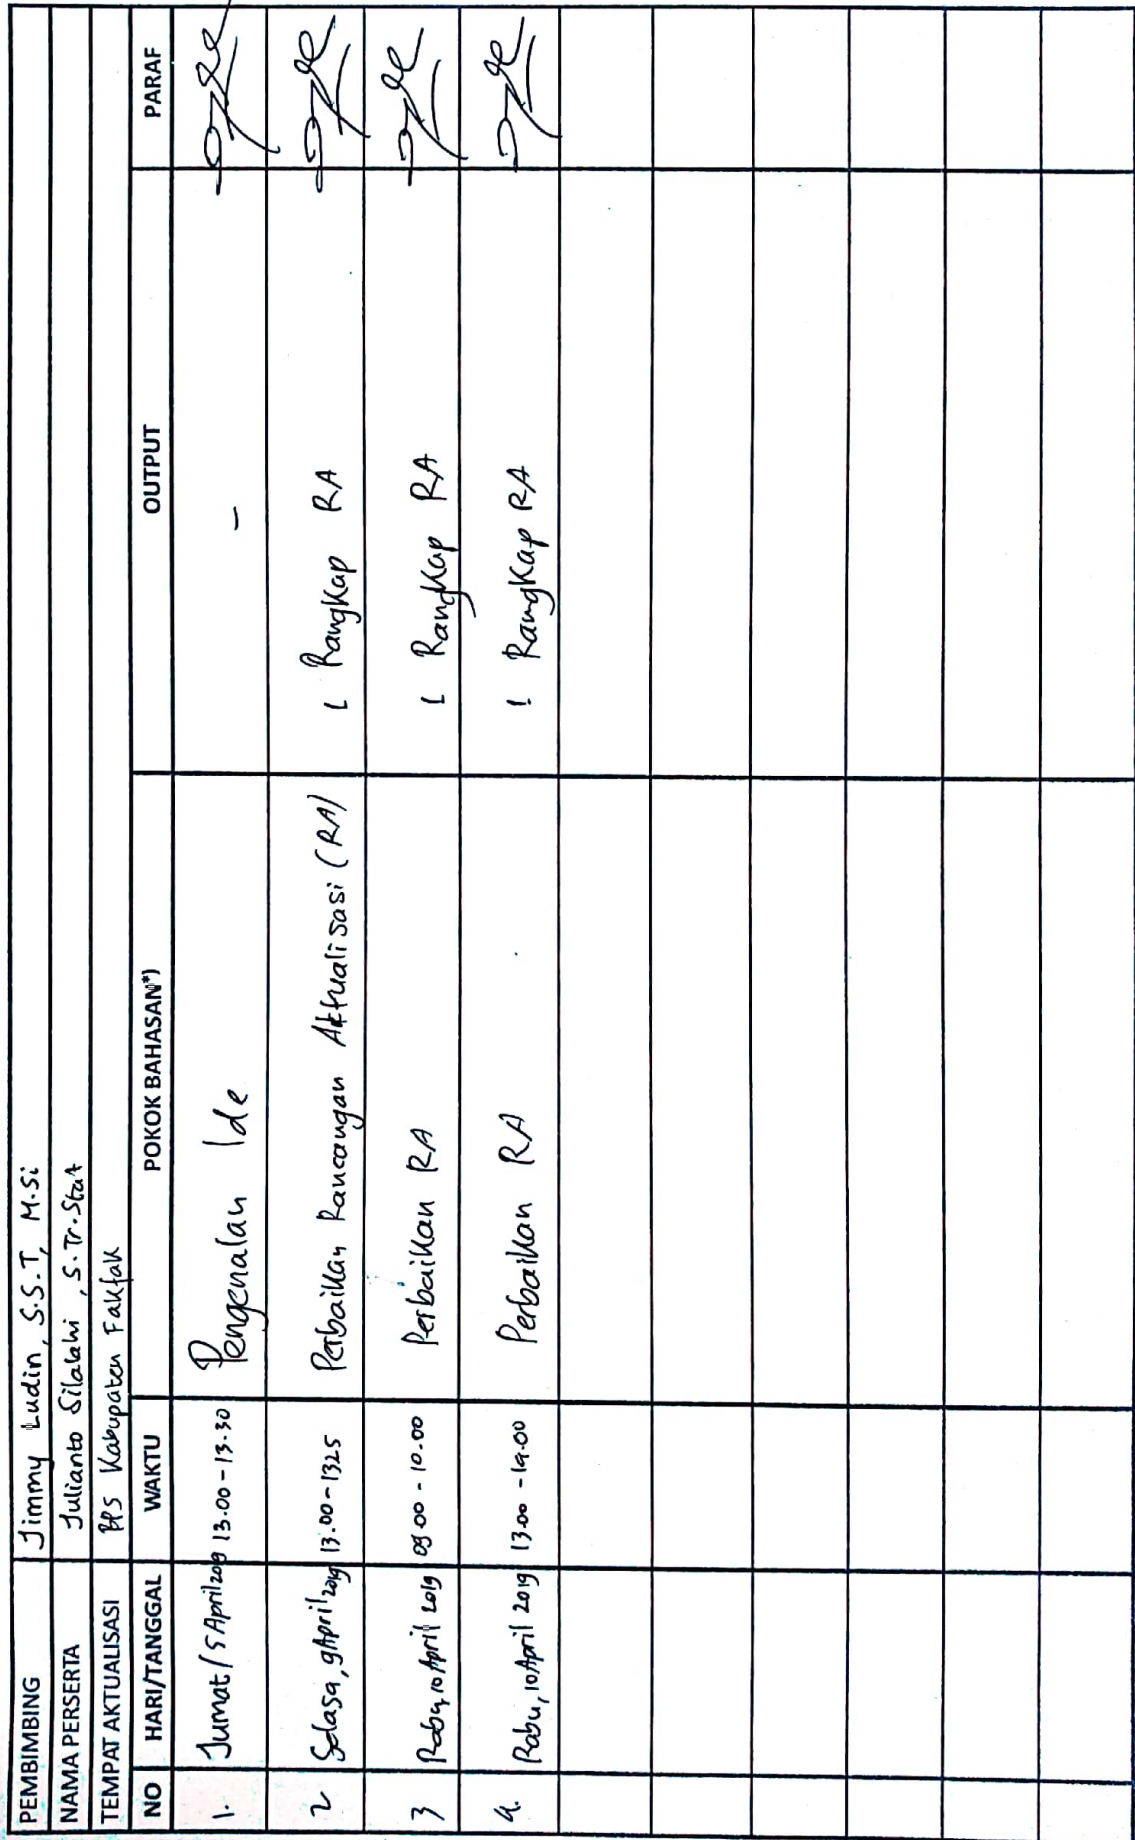 PEMBIMBING Jimmy Ludin, S.S.T, M.Si
NAMA PERSERTA Julianto Silalahi, S.Tr.Stat
TEMPAT AKTUALISASI BPS Kabupaten Fakfak
NO HARI/TANGGAL WAKTU POKOK BAHASAN*) OUTPUT PARAF
1. Jumat / 5 April 2019 13.00 - 13.30 Pengenalan Ide -
2 Selasa, 9 April 2019 13.00 - 1325 Perbaikan Rancangan Aktualisasi (RA) 1 Rangkap RA
3 Rabu, 10 April 2019 09.00 - 10.00 Perbaikan RA 1 Rangkap RA
4. Rabu, 10 April 2019 13.00 - 14.00 Perbaikan RA 1 Rangkap RA